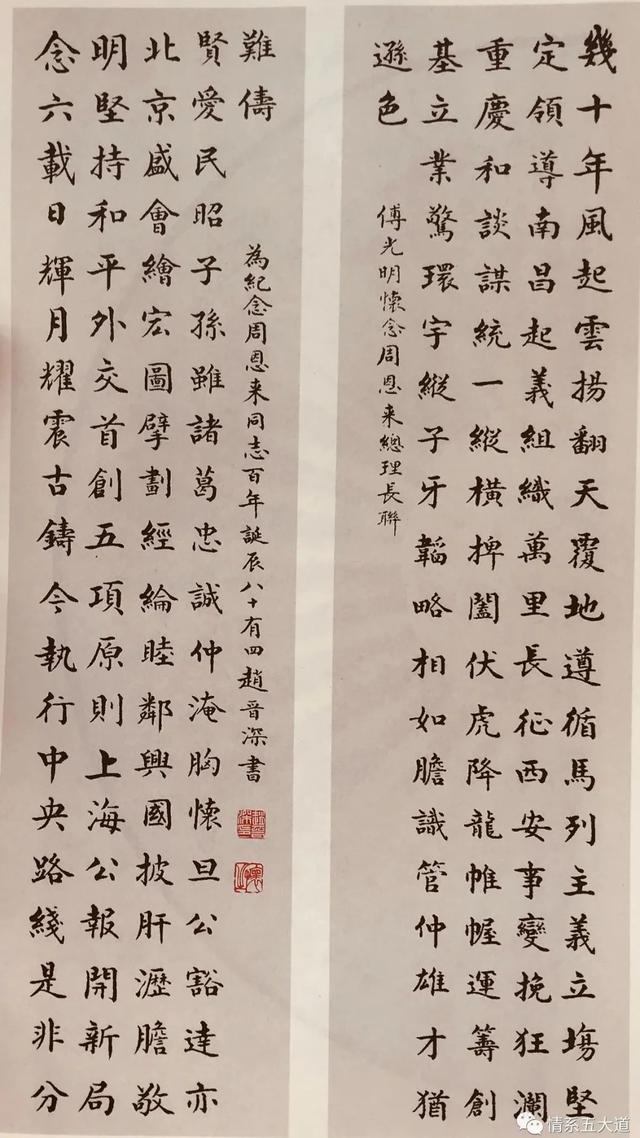 幾十年風起雲揚翻天覆地遵循馬列主義立塲堅
定領導南昌起義組織萬里長征西安事變挽狂瀾
重慶和談謀統一縱橫捭闔伏虎降龍帷幄運籌創
基立業驚環宇縱子牙韜略相如膽識管仲雄才猶
遜色
傅光明懷念周恩来總理長聯
念六載日輝月耀震古鑄今執行中央路綫是非分
明堅持和平外交首創五項原則上海公報開新局
北京盛會繪宏圖擘劃經綸睦鄰興國披肝瀝膽敬
賢愛民昭子孫雖諸葛忠誠仲淹胸懷旦公豁達亦
難儔
為紀念周恩来同志百年誕辰八十有四趙晉深書
情系五大道